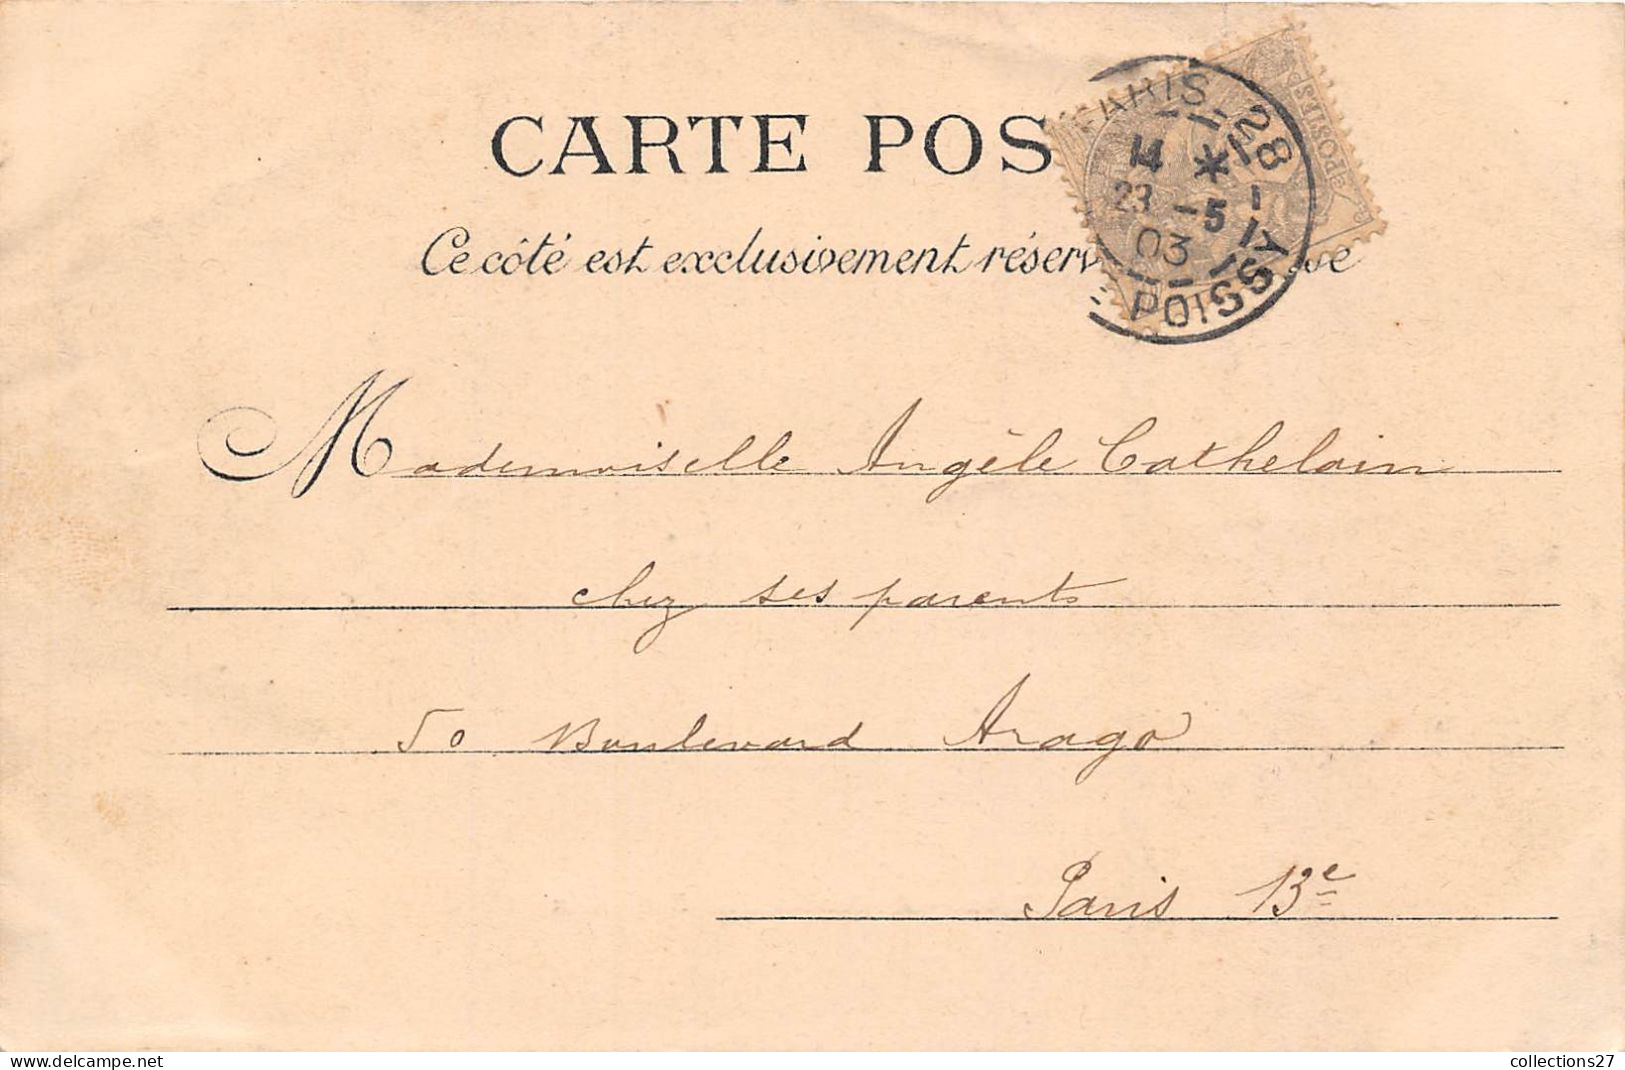 CARTE POS
Ce côté est exclusivement réserv se
PARIS-28
14 * 
23 -5
03
POISSY
POSTES
Mademoiselle Angèle Cathelain
chez ses parents
50 Boulevard Arago
Paris 13e
www.delcampe.net
collections27